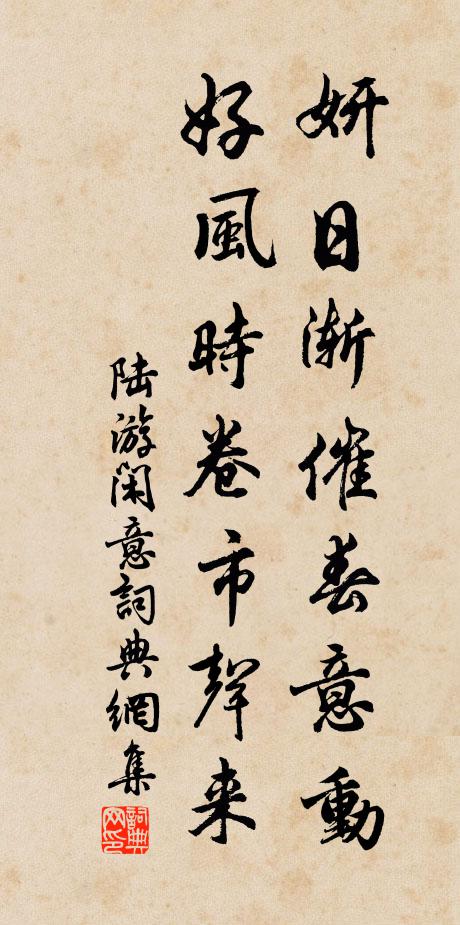 妍日漸催春意動
好風時卷市聲来
陆游闲意詞典網集
詞典网印